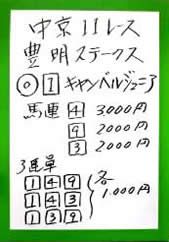 中京11レース
豊明ステークス
◎ 1 キャンベルジュニア
馬連 4 3000円
9 2000円
3 2000円
3連単
1 4 9 各
1 4 3 1.000円
1 3 9